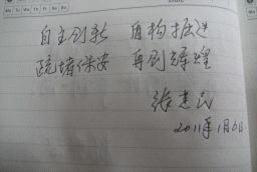 自主创新 再构掘进
疏堵保安 再创辉煌
张建民
2011年1月6日